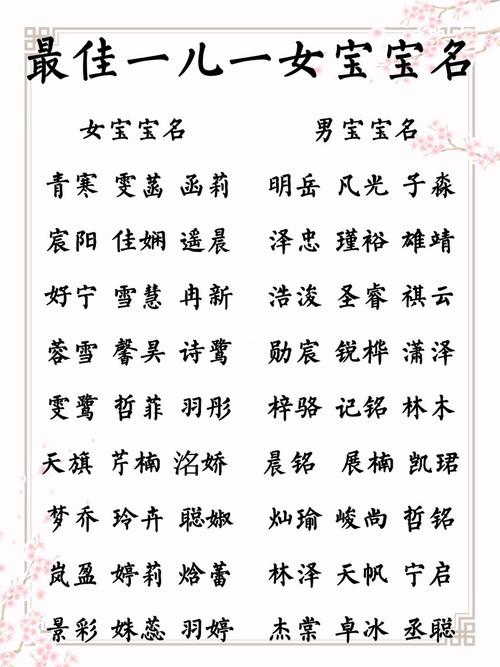 最佳一儿一女宝宝名
女宝宝名 男宝宝名
青寒 雯菡 函莉 明岳 凡光 子淼
宸阳 佳娴 遥晨 泽忠 瑾裕 雄靖
好宁 雪慧 冉新 浩浚 圣睿 祺云
蓉雪 馨昊 诗鹭 勋宸 锐桦 潇泽
雯鹭 哲菲 羽彤 梓骆 记铭 林木
天旗 芹楠 洺娇 晨铭 展楠 凯珺
梦乔 玲卉 聪婌 灿瑜 峻尚 哲铭
岚盈 婷莉 焓蕾 林泽 天帆 宁启
景彩 姝蕊 羽婷 杰棠 卓冰 丞聪